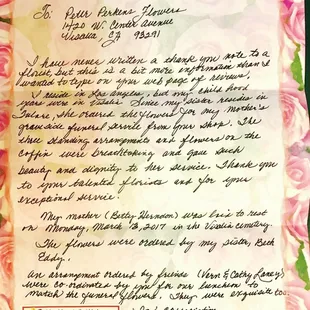 To: Peter Perkens Flowers
1420 W. Center Avenue
Visalia, CA 93291
I have never written a thank you note to a
florist, but this is a bit more information than I
wanted to type on your web page of reviews.
I reside in Los Angeles, but my child hood
years were in Visalia. Since my sister resides in
Tulare, she ordered the flowers for my Mother's
graveside funeral service from your shop. The
three standing arrangements and flowers on the
coffin were breathtaking and gave such
beauty and dignity to her service. Thank you
to your talented florists and for your
exceptional service.
My mother (Betty Herndon) was laid to rest
on Monday, March 13, 2017 in the Visalia cemetery.
The flowers were ordered by my sister, Beth
Eddy.
An arrangement ordered by friends (Vern & Cathy Laney)
were co-ordinated by you for our luncheon to
match the funeral flowers. They were exquisite too.